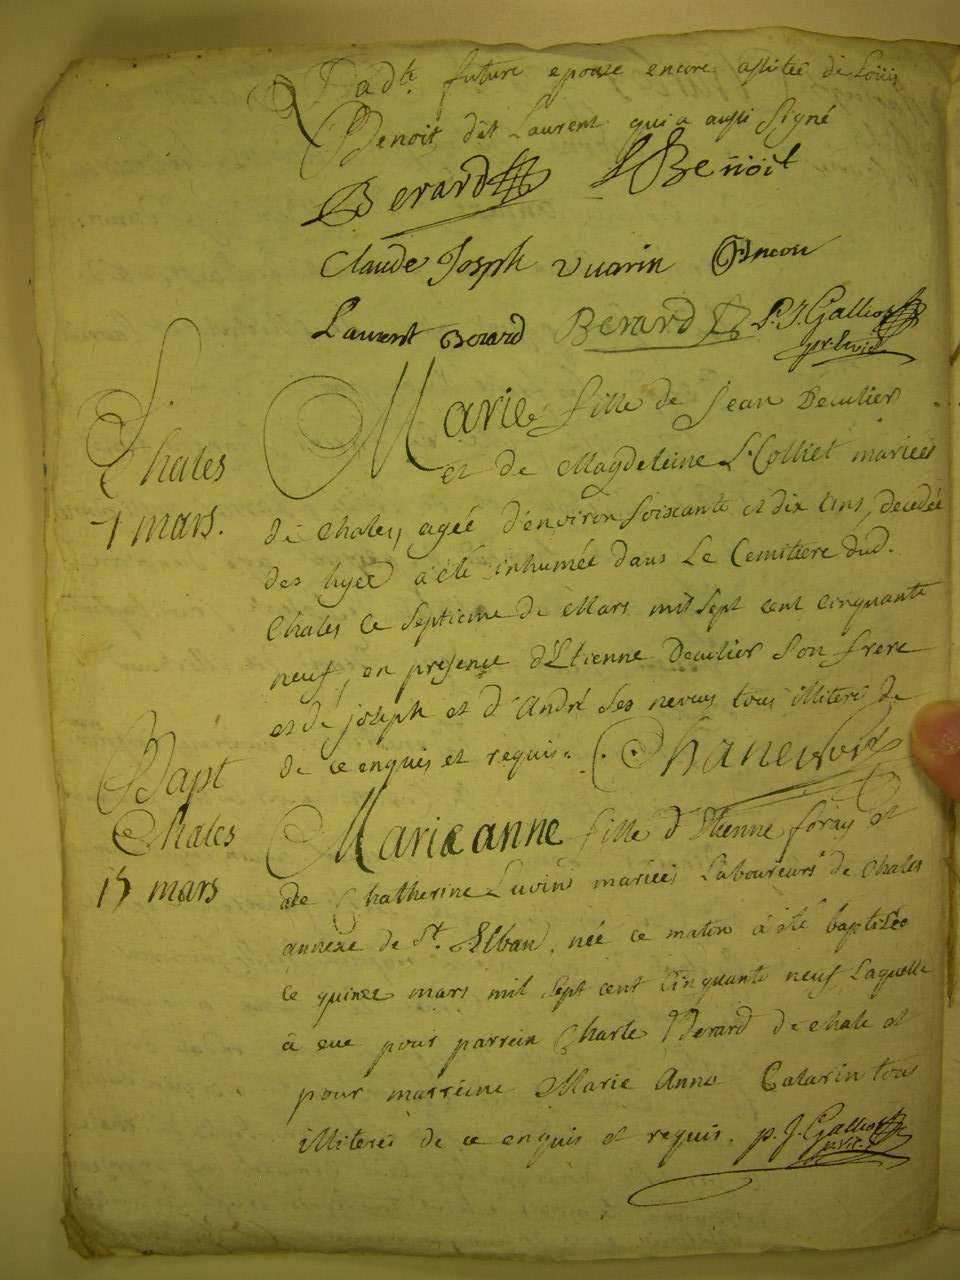 Lad.te future epouze encore assitée de Loüis
Benoit dit Laurent qui a aussi Signé
Berard Benoit
Claude Joseph vuarin
Laurent Berard Berard P. J. Galliot
pr. vic.
Chales
7 mars.
Marie fille de Jean Decutier
et de Magdeleine Colliet mariées
de Chales, agée d'environ Soixante et dix ans, decedée
des hyer a été inhumée dans Le Cemitiere dud.
Chales Le Septieme de Mars mil Sept cent Cinquante
neuf, en presence d'Etienne Decutier Son frere
et de joseph et d'André Ses nevus tous illiteré de
de ce enquis et requis.
Bapt
Chales
15 mars
Marieanne fille d'Etienne foray et
de Chatherine Luvin mariées Laboureurs de Chales
annexe de St. Alban, née ce matin a été baptisée
Le quinze mars mil Sept cent Cinquante neuf Laquelle
a eue pour parrein Charle Berard de chale et
pour marreine Marie Anne Catarin tous
illiterés de ce enquis et requis. p. J. Galliot
p. vic.